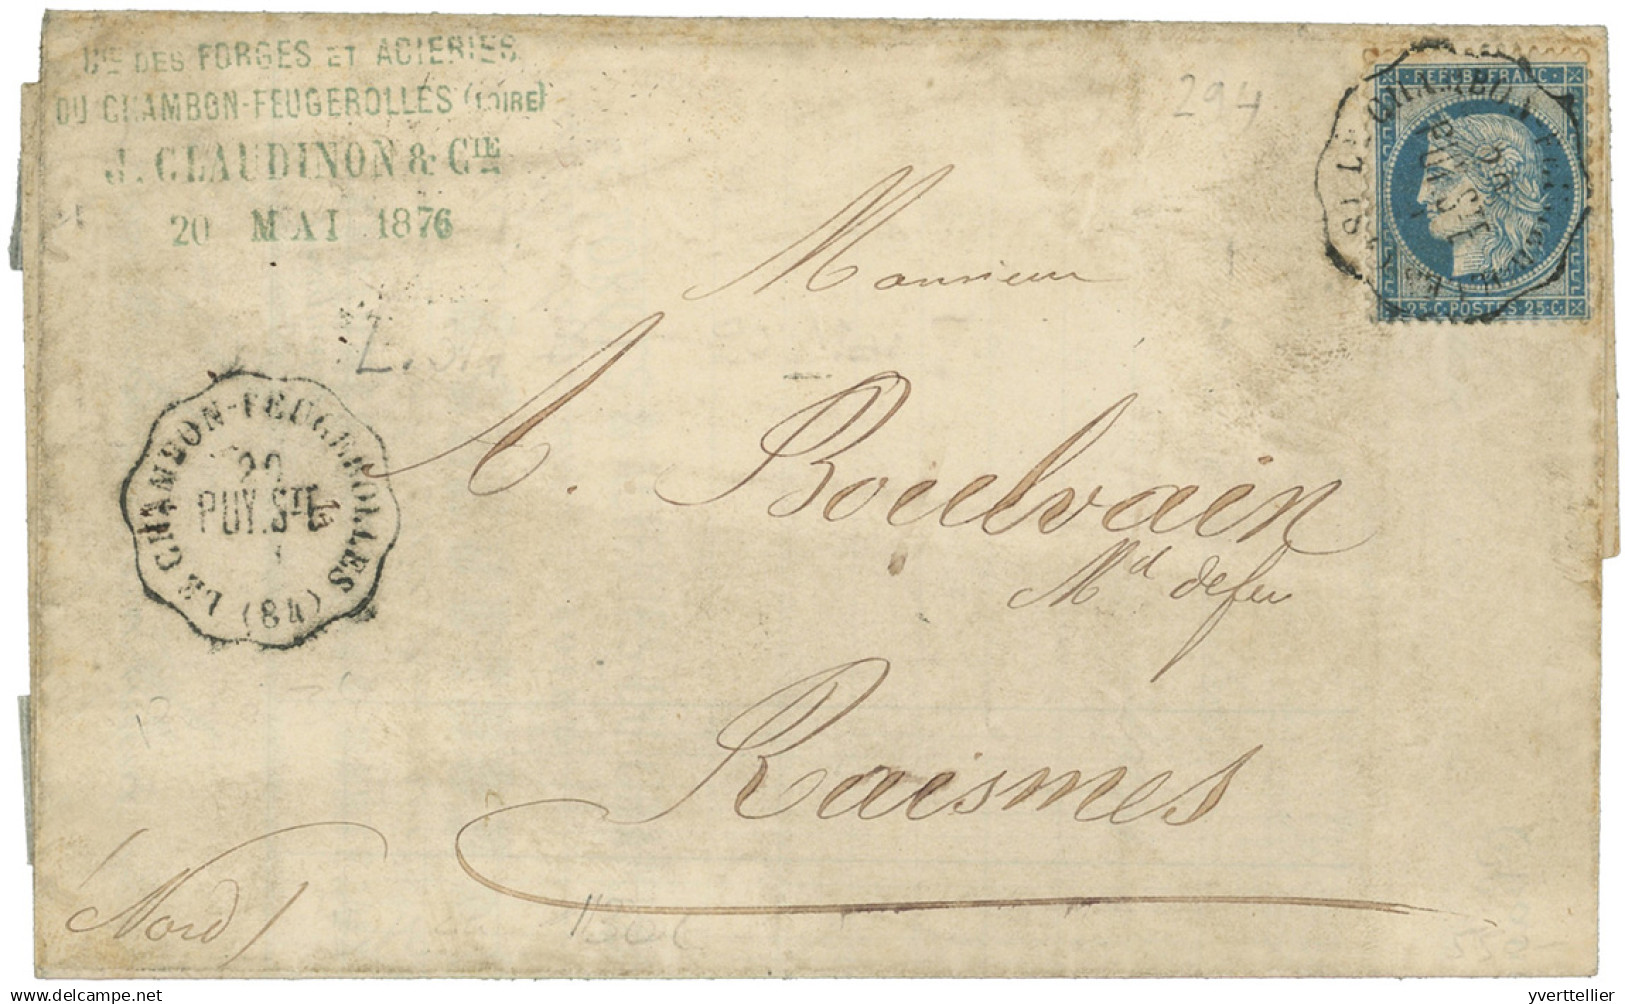 Cie DES FORGES ET ACIERIES
DU CHAMBON-FEUGEROLLES (LOIRE)
J. CLAUDINON & CIE
20 MAI 1876
294
REPUB. FRANC.
25 C. POSTES 25 C.
Monsieur
LE CHAMBON-FEUGEROLLES (84)
20
PUY.STE
A. Boulvain
Md de fer
Raismes
(Nord)
550-
delcampe.net
yverttellier